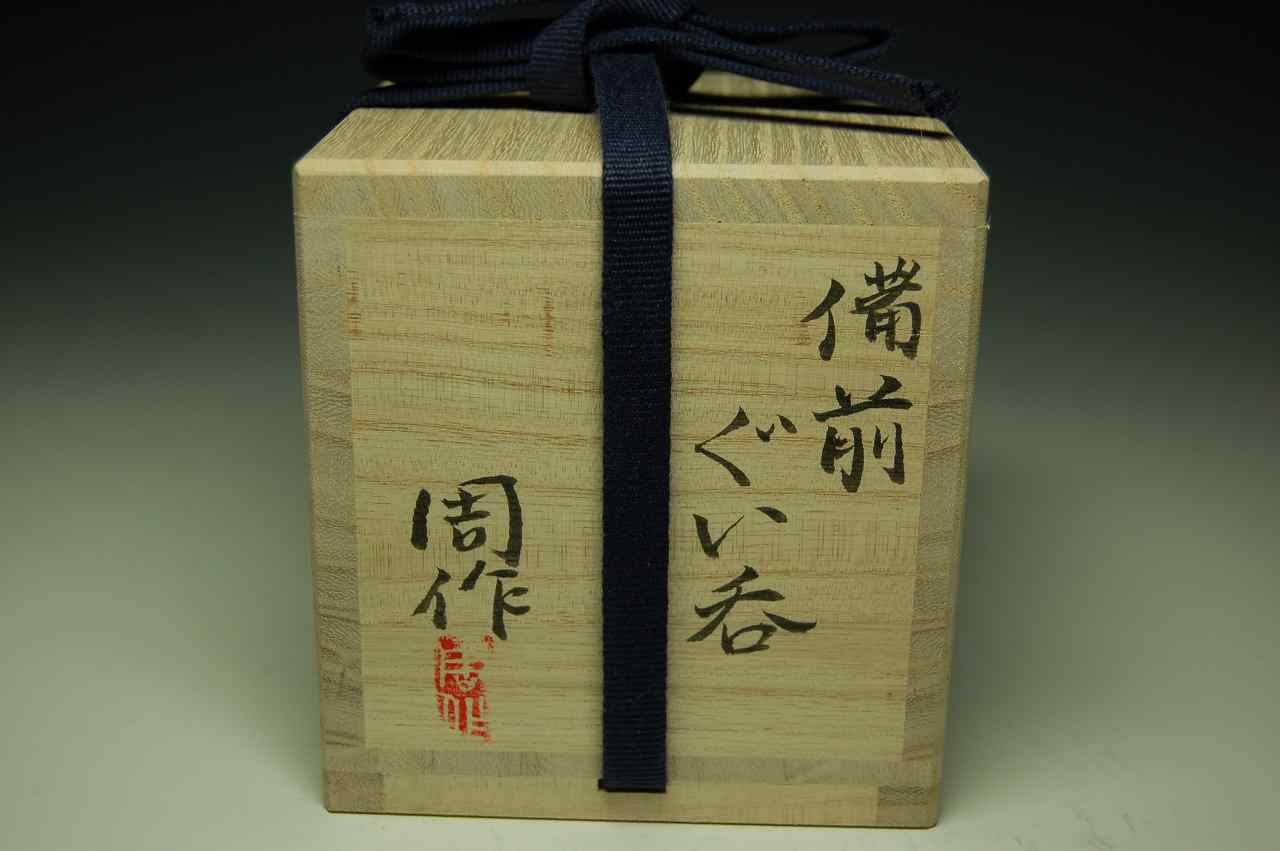 備前
ぐい呑
周作